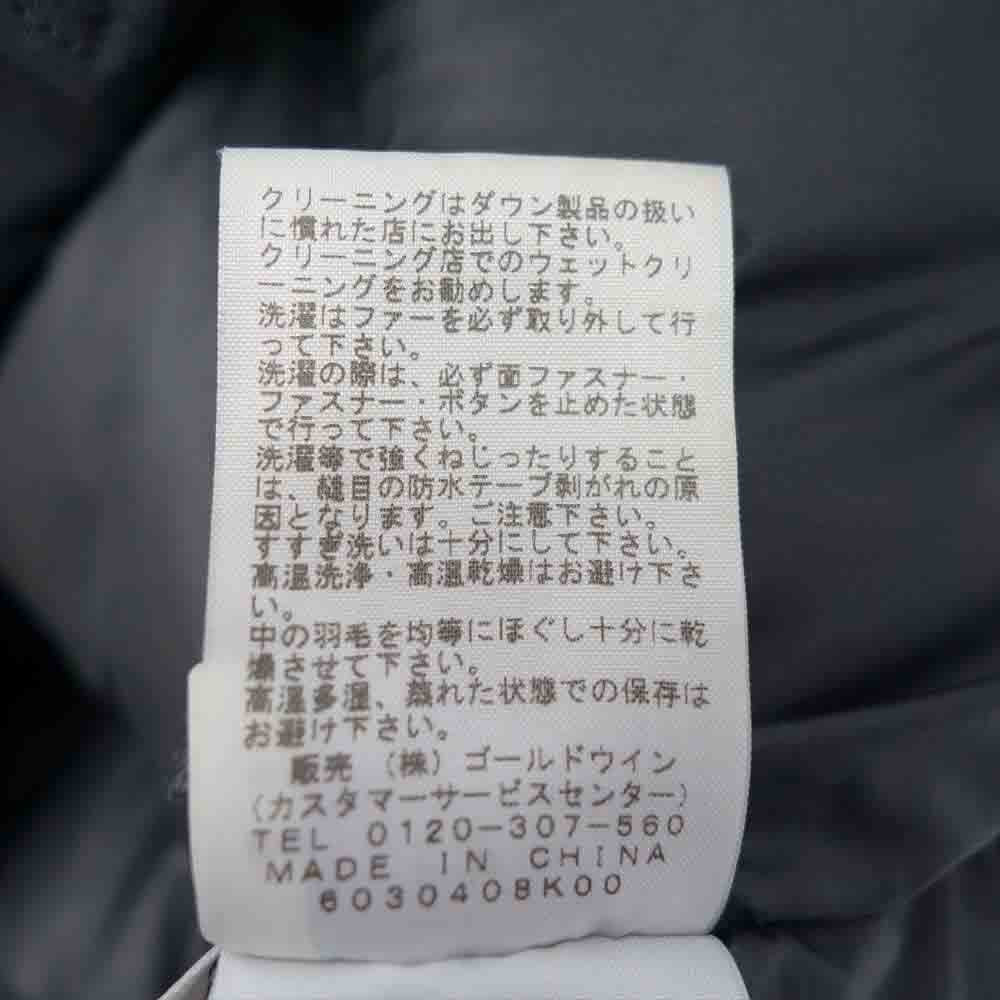 クリーニングはダウン製品の扱い
に慣れた店にお出し下さい。
クリーニング店でのウェットクリ
ーニングをお勧めします。
洗濯はファーを必ず取り外して行
って下さい。
洗濯の際は、必ず面ファスナー・
ファスナー・ボタンを止めた状態
で行って下さい。
洗濯等で強くねじったりすること
は、縫目の防水テープ剥がれの原
因となります。ご注意下さい。
すすぎ洗いは十分にして下さい。
高温洗浄・高温乾燥はお避け下さ
い。
中の羽毛を均等にほぐし十分に乾
燥させて下さい。
高温多湿、蒸れた状態での保存は
お避け下さい。
販売 (株) ゴールドウイン
(カスタマーサービスセンター)
TEL 0120-307-560
MADE IN CHINA
6030408K00